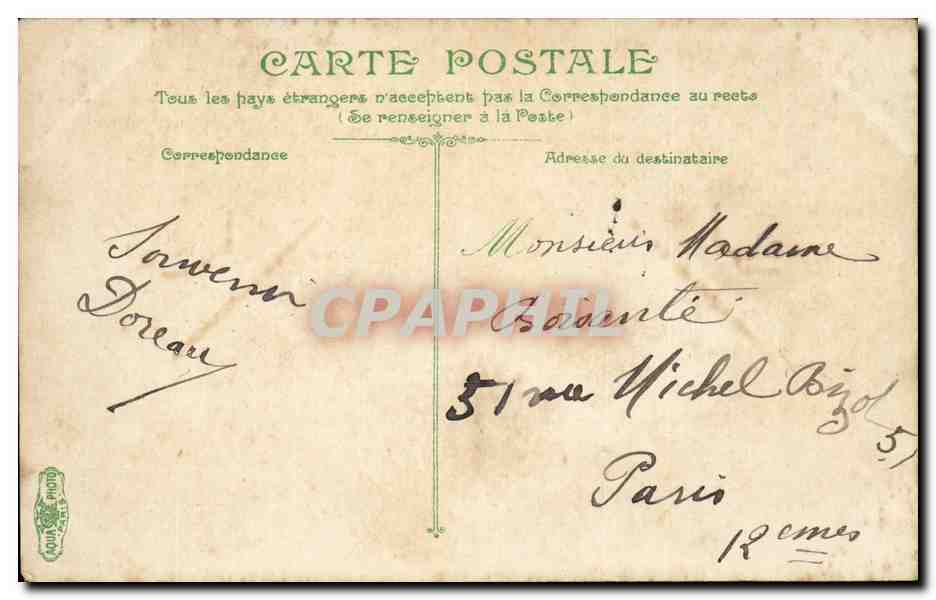 CARTE POSTALE
Tous les pays étrangers n'acceptent pas la Correspondance au recto
(Se renseigner à la Poste)
Correspondance
Adresse du destinataire
Souvenir
Doreau
Monsieur Madame
Boisanté
51 rue Michel Bizot
51
Paris
12 emes
CPAPHIL
AQUA PHOTO
PARIS